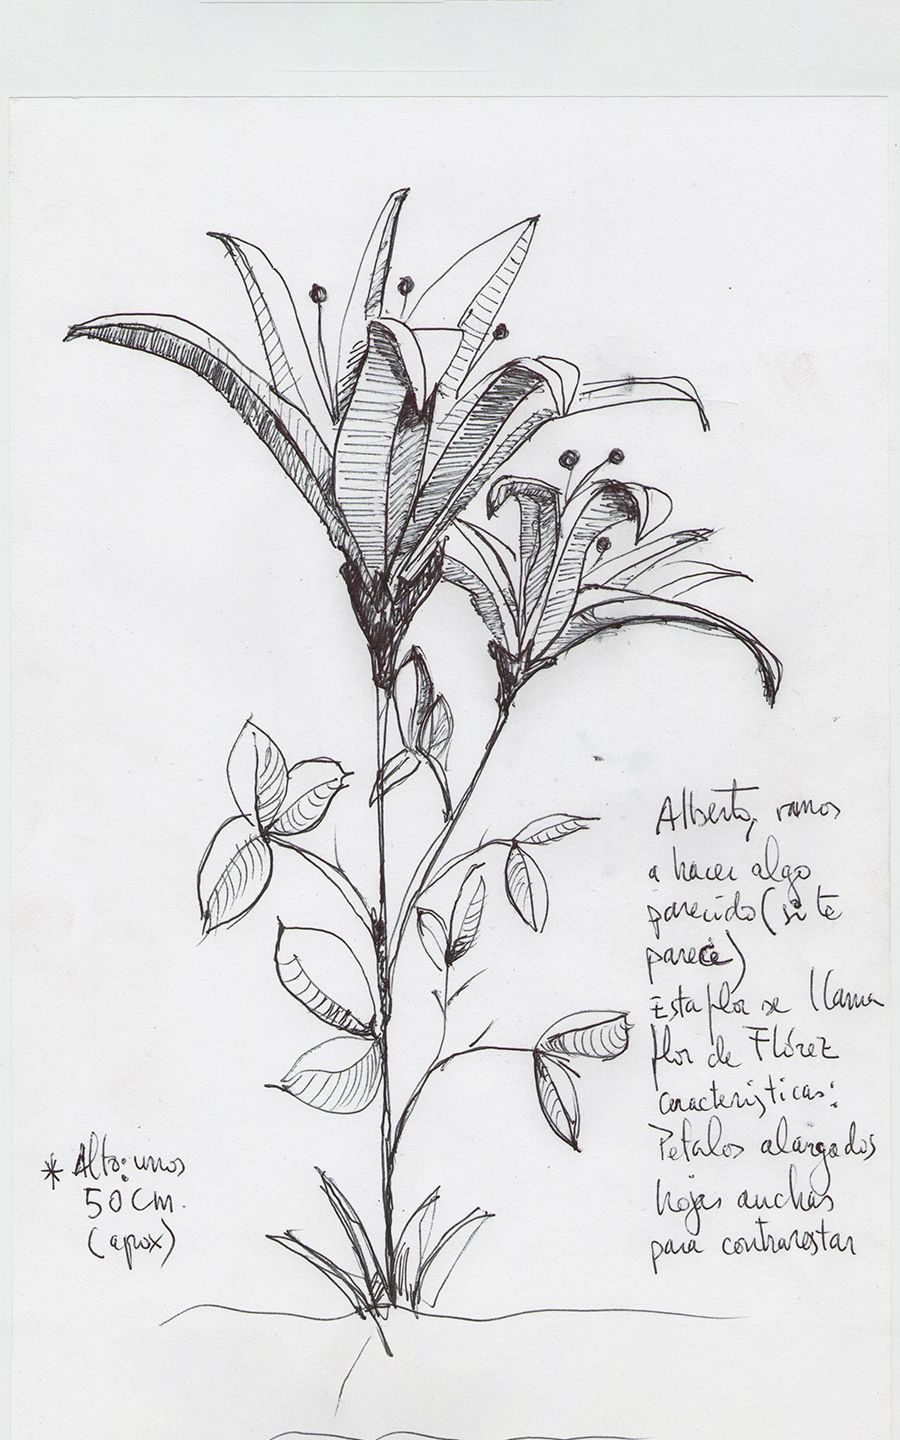 Alberto, vamos
a hacer algo
parecido (si te
parece)
Esta flor se llama
flor de Flórez
características:
Pétalos alargados
hojas anchas
para contrarestar
* Alto: unos
50 cm.
(aprox)